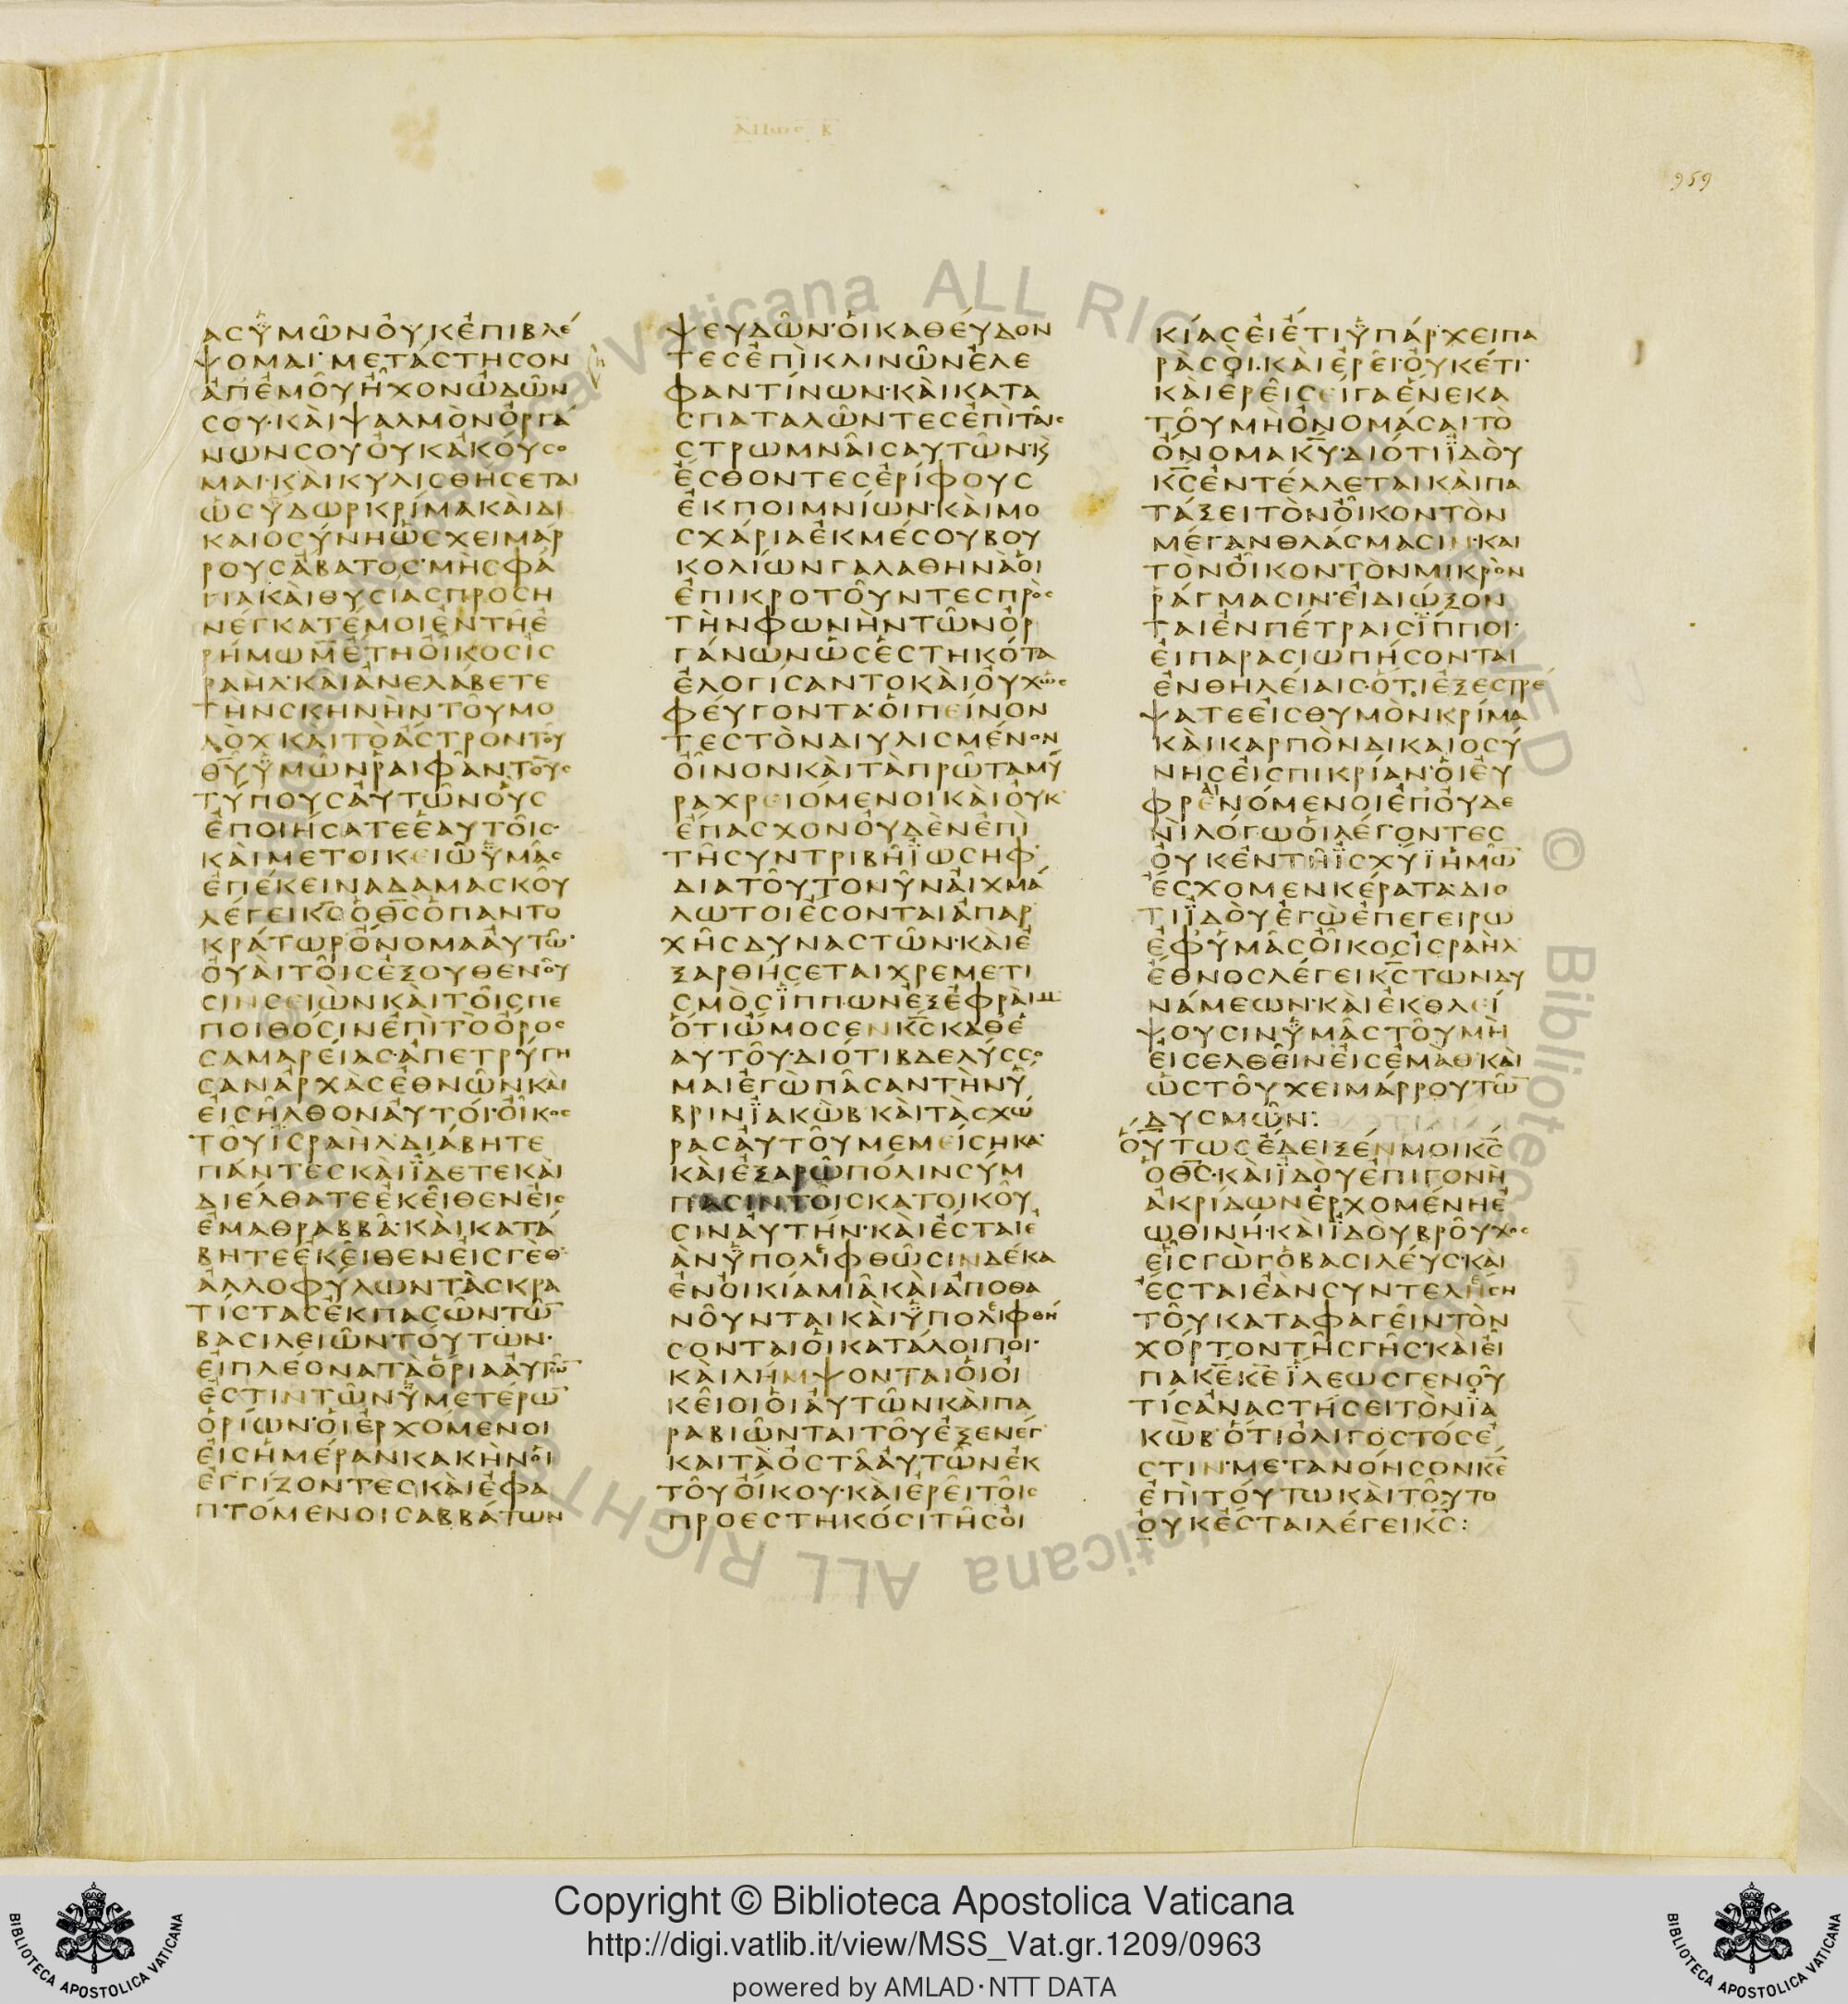 ΑΜΩΣ Β
959
ΑΣΫΜΩΝΟΥΚΕΠΙΒΛΕ
ΨΟΜΑΙ· ΜΕΤΑΣΤΗΣΟΝ
ΑΠΕΜΟΥΗΧΟΝΩΔΩΝ
ΣΟΥ·ΚΑΙΨΑΛΜΟΝΟΡΓΑ
ΝΩΝΣΟΥΟΥΚΑΚΟΥΣΟ
ΜΑΙ·ΚΑΙΚΥΛΙΣΘΗΣΕΤΑΙ
ΩΣΫΔΩΡΚΡΙΜΑΚΑΙΔΙ
ΚΑΙΟΣΥΝΗΩΣΧΕΙΜΑΡ
ΡΟΥΣΑΒΑΤΟΣ·ΜΗΣΦΑ
ΓΙΑΚΑΙΘΥΣΙΑΣΠΡΟΣΗ
ΝΕΓΚΑΤΕΜΟΙΕΝΤΗΕ
ΡΗΜΩΜ̅ΕΤΗΟΙΚΟΣΙΣ
ΡΑΗΛ·ΚΑΙΑΝΕΛΑΒΕΤΕ
ΤΗΝΣΚΗΝΗΝΤΟΥΜΟ
ΛΟΧΚΑΙΤΟΑΣΤΡΟΝΤΟΥ
Θ̅Υ̅ΫΜΩΝΡΑΙΦΑΝΤΟΥΣ
ΤΥΠΟΥΣΑΥΤΩΝΟΥΣ
ΕΠΟΙΗΣΑΤΕΕΑΥΤΟΙΣ·
ΚΑΙΜΕΤΟΙΚΕΙΩΫΜΑΣ
ΕΠΕΚΕΙΝΑΔΑΜΑΣΚΟΥ
ΛΕΓΕΙΚ̅Σ̅ΟΘ̅Σ̅ΟΠΑΝΤΟ
ΚΡΑΤΩΡΟΝΟΜΑΑΥΤΩ·
ΟΥΑΙΤΟΙΣΕΞΟΥΘΕΝΟΥ
ΣΙΝΣΕΙΩΝΚΑΙΤΟΙΣΠΕ
ΠΟΙΘΟΣΙΝΕΠΙΤΟΟΡΟΣ
ΣΑΜΑΡΕΙΑΣ·ΑΠΕΤΡΥΓΗ
ΣΑΝΑΡΧΑΣΕΘΝΩΝΚΑΙ
ΕΙΣΗΛΘΟΝΑΥΤΟΙ·ΟΙΚΟΣ
ΤΟΥΙΣΡΑΗΛ·ΔΙΑΒΗΤΕ
ΠΑΝΤΕΣΚΑΙΪΔΕΤΕΚΑΙ
ΔΙΕΛΘΑΤΕΕΚΕΙΘΕΝΕΙΣ
ΕΜΑΘΡΑΒΒΑ·ΚΑΙΚΑΤΑ
ΒΗΤΕΕΚΕΙΘΕΝΕΙΣΓΕΘ
ΑΛΛΟΦΥΛΩΝΤΑΣΚΡΑ
ΤΙΣΤΑΣΕΚΠΑΣΩΝΤΩ̅
ΒΑΣΙΛΕΙΩΝΤΟΥΤΩΝ·
ΕΙΠΛΕΟΝΑΤΑΟΡΙΑΑΥΤΩ̅
ΕΣΤΙΝΤΩΝΫΜΕΤΕΡΩ̅
ΟΡΙΩΝ·ΟΙΕΡΧΟΜΕΝΟΙ
ΕΙΣΗΜΕΡΑΝΚΑΚΗΝΟΙ
ΕΓΓΙΖΟΝΤΕΣΚΑΙΕΦΑ
ΠΤΟΜΕΝΟΙΣΑΒΒΑΤΩΝ
ΨΕΥΔΩΝ·ΟΙΚΑΘΕΥΔΟΝ
ΤΕΣΕΠΙΚΛΙΝΩΝΕΛΕ
ΦΑΝΤΙΝΩΝ·ΚΑΙΚΑΤΑ
ΣΠΑΤΑΛΩΝΤΕΣΕΠΙΤΑΙΣ
ΣΤΡΩΜΝΑΙΣΑΥΤΩΝ·Κ
ΕΣΘΟΝΤΕΣΕΡΙΦΟΥΣ
ΕΚΠΟΙΜΝΙΩΝ·ΚΑΙΜΟ
ΣΧΑΡΙΑΕΚΜΕΣΟΥΒΟΥ
ΚΟΛΙΩΝΓΑΛΑΘΗΝΑΟΙ
ΕΠΙΚΡΟΤΟΥΝΤΕΣΠΡΟΣ
ΤΗΝΦΩΝΗΝΤΩΝΟΡ
ΓΑΝΩΝΩΣΕΣΤΗΚΟΤΑ
ΕΛΟΓΙΣΑΝΤΟΚΑΙΟΥΧΩΣ
ΦΕΥΓΟΝΤΑ·ΟΙΠΕΙΝΟΝ
ΤΕΣΤΟΝΔΙΥΛΙΣΜΕΝΟΝ
ΟΙΝΟΝΚΑΙΤΑΠΡΩΤΑΜΥ
ΡΑΧΡΕΙΟΜΕΝΟΙΚΑΙΟΥΚ
ΕΠΑΣΧΟΝΟΥΔΕΝΕΠΙ
ΤΗΣΥΝΤΡΙΒΗΪΩΣΗΦ·
ΔΙΑΤΟΥΤΟΝΥΝΑΙΧΜΑ
ΛΩΤΟΙΕΣΟΝΤΑΙΑΠΑΡ
ΧΗΣΔΥΝΑΣΤΩΝ·ΚΑΙΕ
ΞΑΡΘΗΣΕΤΑΙΧΡΕΜΕΤΙ
ΣΜΟΣΪΠΠΩΝΕΞΕΦΡΑΙΜ
ΟΤΙΩΜΟΣΕΝΚ̅Σ̅ΚΑΘΕ
ΑΥΤΟΥ·ΔΙΟΤΙΒΔΕΛΥΣΣΟ
ΜΑΙΕΓΩΠΑΣΑΝΤΗΝΫ
ΒΡΙΝΪΑΚΩΒΚΑΙΤΑΣΧΩ
ΡΑΣΑΥΤΟΥΜΕΜΕΙΣΗΚΑ·
ΚΑΙΕΞΑΡΩΠΟΛΙΝΣΥΜ
ΠΑΣΙΝΤΟΙΣΚΑΤΟΙΚΟΥ
ΣΙΝΑΥΤΗΝ·ΚΑΙΕΣΤΑΙΕ
ΑΝΫΠΟΛΙΦΘΩΣΙΝΔΕΚΑ
ΕΝΟΙΚΙΑΜΙΑΚΑΙΑΠΟΘΑ
ΝΟΥΝΤΑΙΚΑΙΫΠΟΛΙΦΘΗ
ΣΟΝΤΑΙΟΙΚΑΤΑΛΟΙΠΟΙ·
ΚΑΙΛΗΜΨΟΝΤΑΙΟΙΟΙ
ΚΕΙΟΙΟΙΑΥΤΩΝΚΑΙΠΑ
ΡΑΒΙΩΝΤΑΙΤΟΥΕΞΕΝΕΓ
ΚΑΙΤΑΟΣΤΑΑΥΤΩΝΕΚ
ΤΟΥΟΙΚΟΥ·ΚΑΙΕΡΕΙΤΟΙΣ
ΠΡΟΕΣΤΗΚΟΣΙΤΗΣΟΙ
ΚΙΑΣΕΙΕΤΙΫΠΑΡΧΕΙΠΑ
ΡΑΣΟΙ·ΚΑΙΕΡΕΙ·ΟΥΚΕΤΙ·
ΚΑΙΕΡΕΙΣΕΙΓΑΕΝΕΚΑ
ΤΟΥΜΗΟΝΟΜΑΣΑΙΤΟ
ΟΝΟΜΑΚ̅Υ̅·ΔΙΟΤΙΪΔΟΥ
Κ̅Σ̅ΕΝΤΕΛΛΕΤΑΙΚΑΙΠΑ
ΤΑΞΕΙΤΟΝΟΙΚΟΝΤΟΝ
ΜΕΓΑΝΘΛΑΣΜΑΣΙΝ·ΚΑΙ
ΤΟΝΟΙΚΟΝΤΟΝΜΙΚΡΟΝ
ΡΑΓΜΑΣΙΝ·ΕΙΔΙΩΞΟΝ
ΤΑΙΕΝΠΕΤΡΑΙΣΪΠΠΟΙ·
ΕΙΠΑΡΑΣΙΩΠΗΣΟΝΤΑΙ
ΕΝΘΗΛΕΙΑΙΣ·ΟΤΙΕΞΕΣΤΡΕ
ΨΑΤΕΕΙΣΘΥΜΟΝΚΡΙΜΑ
ΚΑΙΚΑΡΠΟΝΔΙΚΑΙΟΣΥ
ΝΗΣΕΙΣΠΙΚΡΙΑΝ·ΟΙΕΥ
ΦΡΕΝΟΜΕΝΟΙΕΠΟΥΔΕ
ΝΙΛΟΓΩΟΙΛΕΓΟΝΤΕΣ
ΟΥΚΕΝΤΗΪΣΧΥΪΗΜΩ̅
ΕΣΧΟΜΕΝΚΕΡΑΤΑ·ΔΙΟ
ΤΙΪΔΟΥΕΓΩΕΠΕΓΕΙΡΩ
ΕΦΥΜΑΣΟΙΚΟΣΙΣΡΑΗΛ
ΕΘΝΟΣΛΕΓΕΙΚ̅Σ̅ΤΩΝΔΥ
ΝΑΜΕΩΝ·ΚΑΙΕΚΘΛΕΙ
ΨΟΥΣΙΝΫΜΑΣΤΟΥΜΗ
ΕΙΣΕΛΘΕΙΝΕΙΣΕΜΑΘ·ΚΑΙ
ΩΣΤΟΥΧΕΙΜΑΡΡΟΥΤΩ̅
ΔΥΣΜΩΝ:
ΟΥΤΩΣΕΔΕΙΞΕΝΜΟΙΚ̅Σ̅
ΟΘ̅Σ̅·ΚΑΙΪΔΟΥΕΠΙΓΟΝΗ
ΑΚΡΙΔΩΝΕΡΧΟΜΕΝΗΕ
ΩΘΙΝΗ·ΚΑΙΪΔΟΥΒΡΟΥΧΟΣ
ΕΙΣΓΩΓΟΒΑΣΙΛΕΥΣ·ΚΑΙ
ΕΣΤΑΙΕΑΝΣΥΝΤΕΛΕΣΗ
ΤΟΥΚΑΤΑΦΑΓΕΙΝΤΟΝ
ΧΟΡΤΟΝΤΗΣΓΗΣ·ΚΑΙΕΙ
ΠΑΚ̅Ε̅Κ̅Ε̅ΪΛΕΩΣΓΕΝΟΥ
ΤΙΣΑΝΑΣΤΗΣΕΙΤΟΝΪΑ
ΚΩΒ·ΟΤΙΟΛΙΓΟΣΤΟΣΕ
ΣΤΙΝ·ΜΕΤΑΝΟΗΣΟΝΚ̅Ε̅
ΕΠΙΤΟΥΤΩΚΑΙΤΟΥΤΟ
ΟΥΚΕΣΤΑΙΛΕΓΕΙΚ̅Σ̅:
Copyright © Biblioteca Apostolica Vaticana
http://digi.vatlib.it/view/MSS_Vat.gr.1209/0963
powered by AMLAD·NTT DATA
BIBLIOTECA APOSTOLICA VATICANA
BIBLIOTECA APOSTOLICA VATICANA